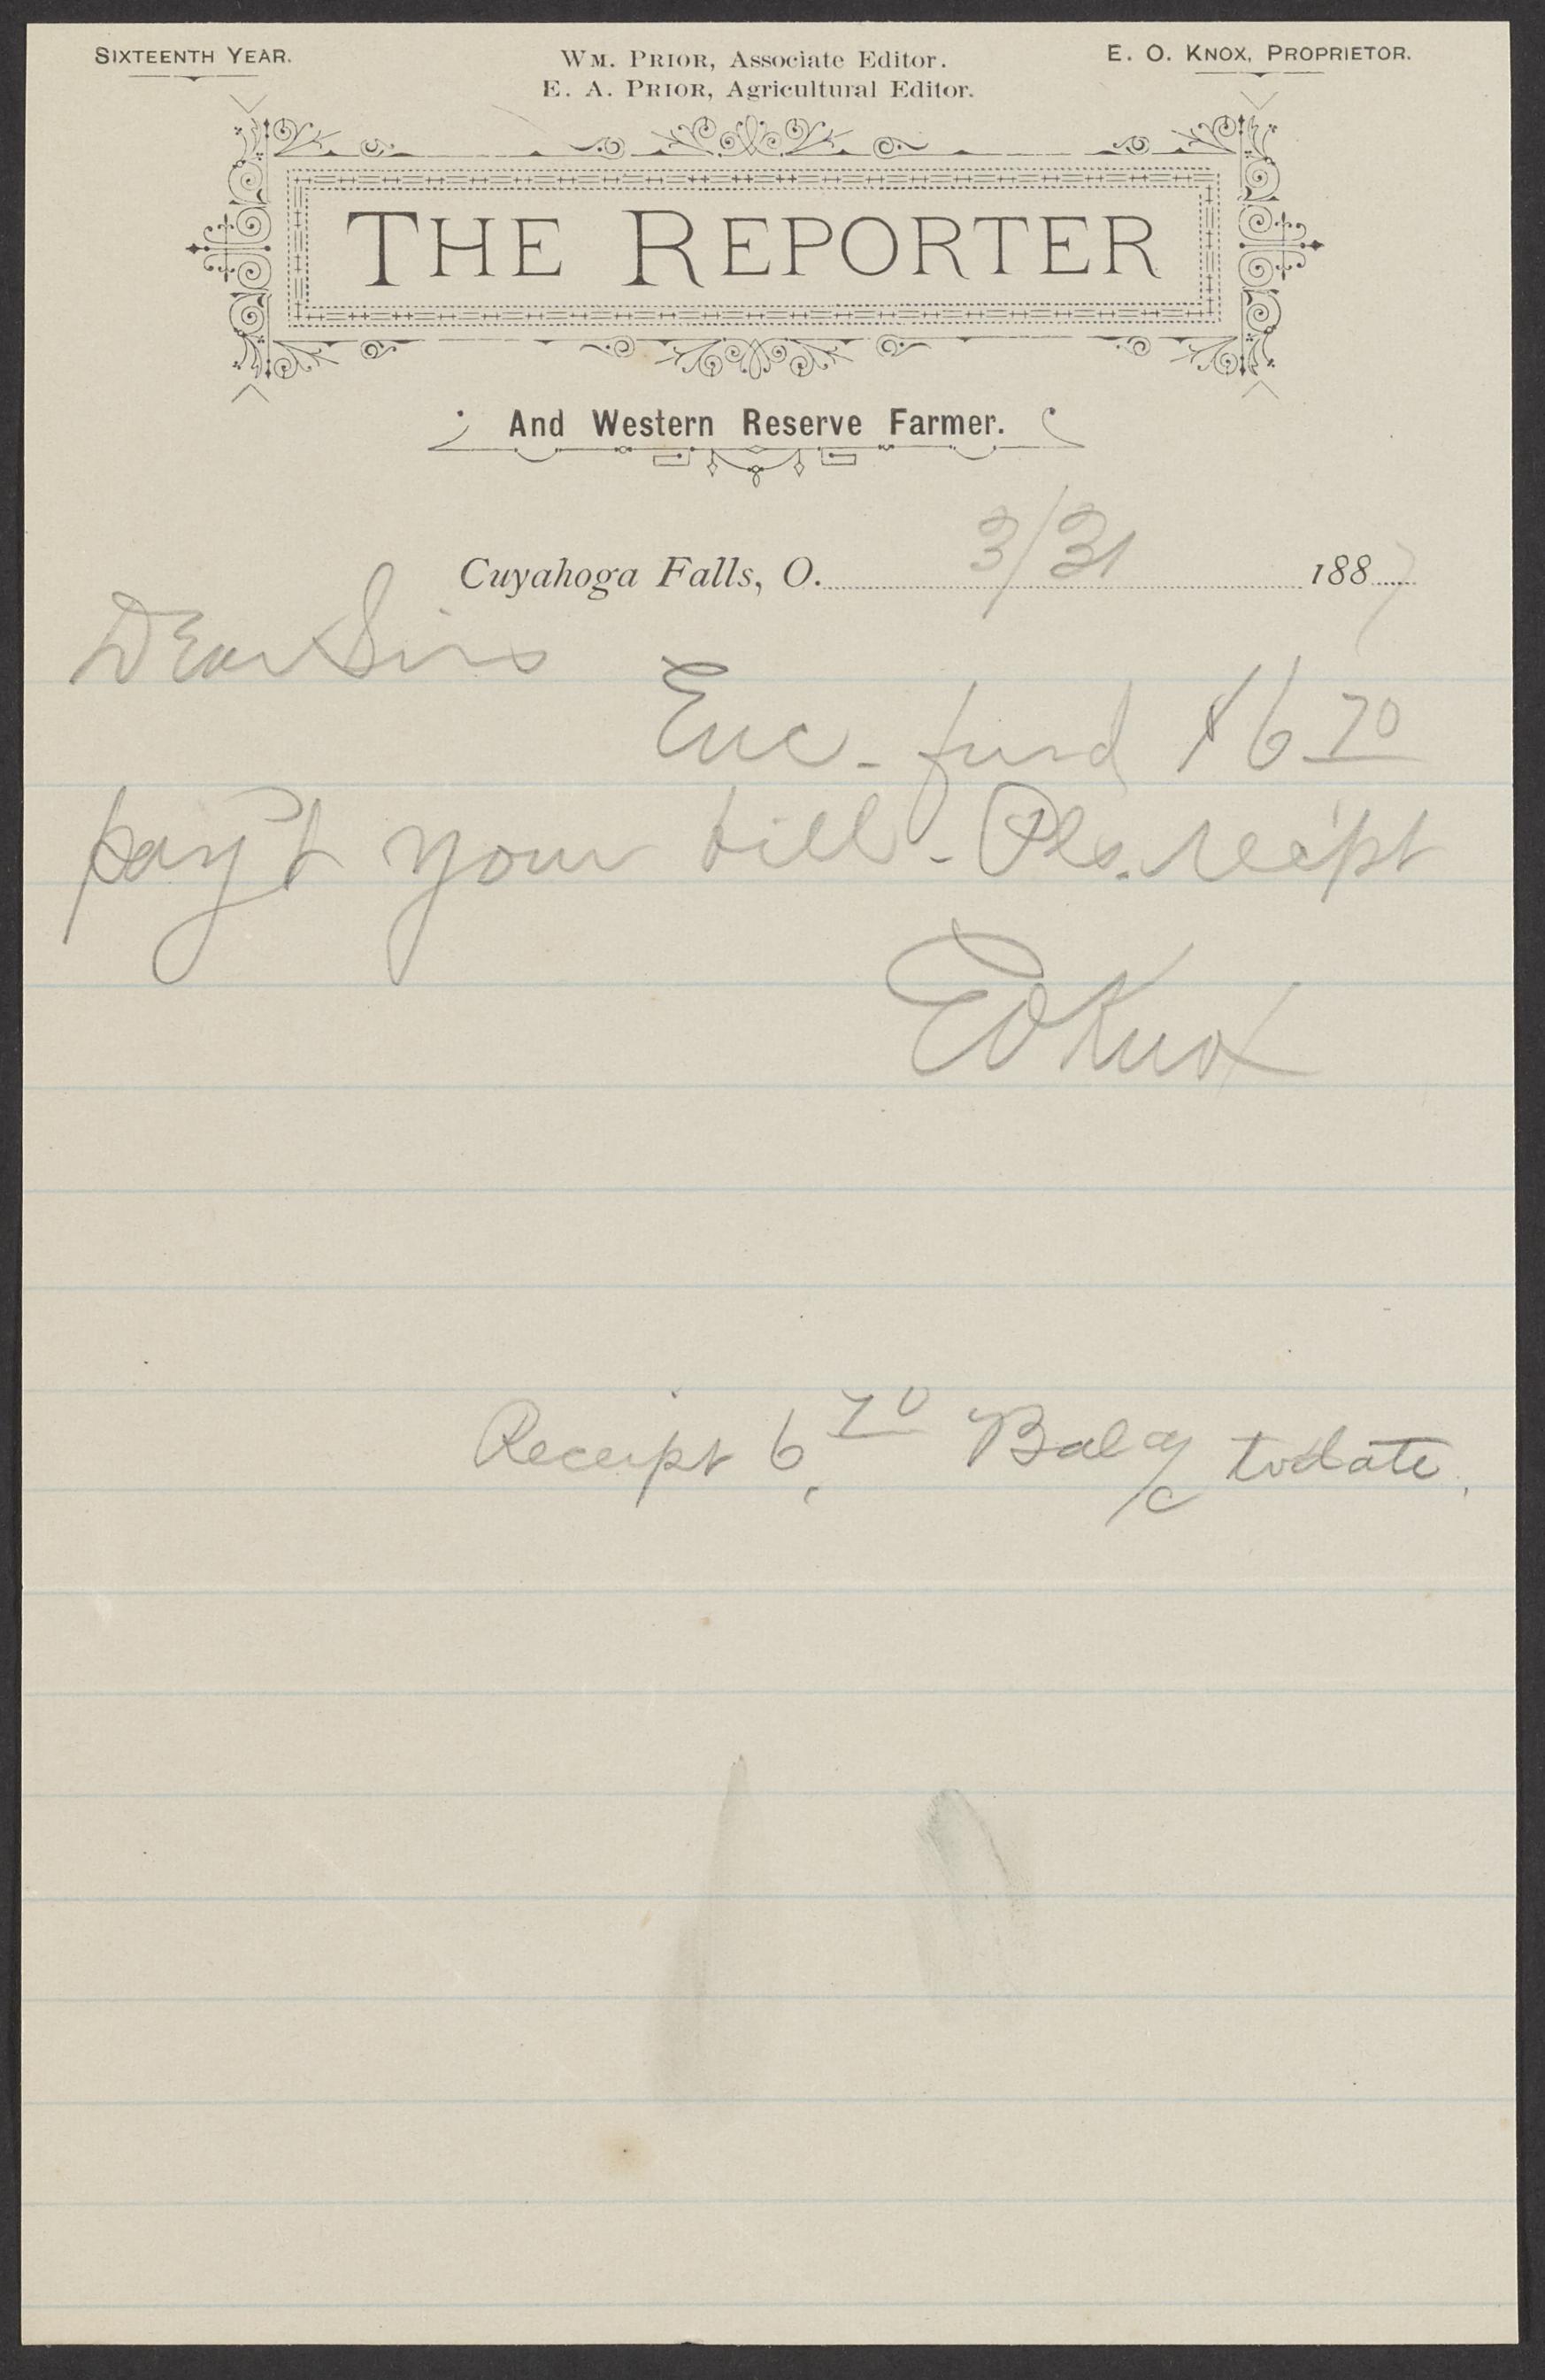 SIXTEENTH YEAR.
WM. PRIOR, Associate Editor.
E. A. PRIOR, Agricultural Editor.
E. O. KNOX, PROPRIETOR.
THE REPORTER
And Western Reserve Farmer.
Cuyahoga Falls, O. 3/31 1887
Dear Sirs
Enc. find $6 70
pay't your bill. Pls. rec'pt
EO Knox
Receipt 6.70 Bal a/c to date.